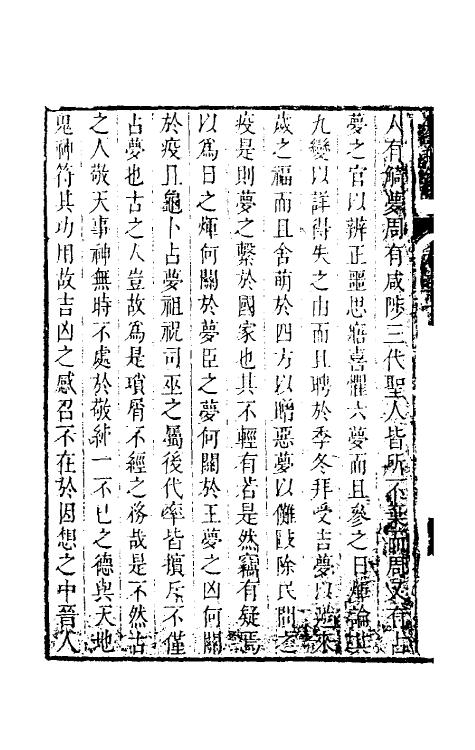 人有觭夢周有咸陟三代聖人皆所不棄而周又有占
夢之官以辨正噩思寤喜懼六夢而且參之日煇論其
九變以詳得失之由而且聘於季冬拜受吉夢以迓來
歲之福而且舍萌於四方以贈惡夢以儺敺除民間之
疫是則夢之繫於國家也其不輕有若是然竊有疑焉
以爲日之煇何關於夢臣之夢何關於王夢之凶何關
於疫且龜卜占夢祖祝司巫之屬後代率皆擯斥不僅
占夢也古之人豈故爲是瑣屑不經之務哉是不然古
之人敬天事神無時不處於敬純一不已之德與天地
鬼神符其功用故吉凶之感召不在於因想之中晉人